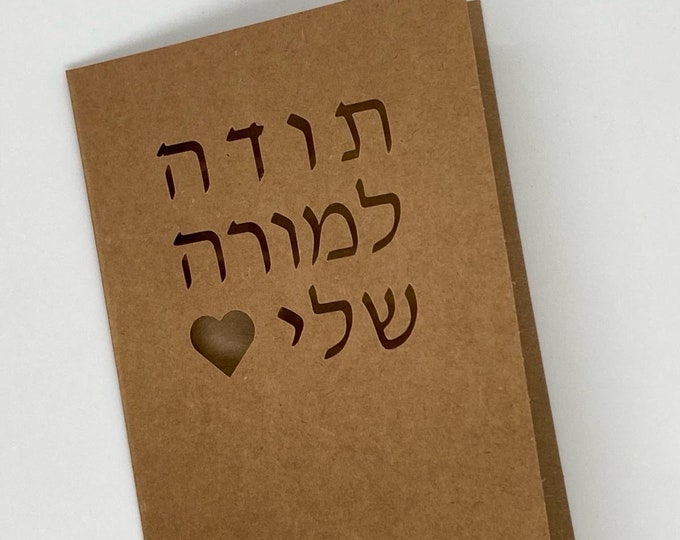 תודה
למורה
שלי